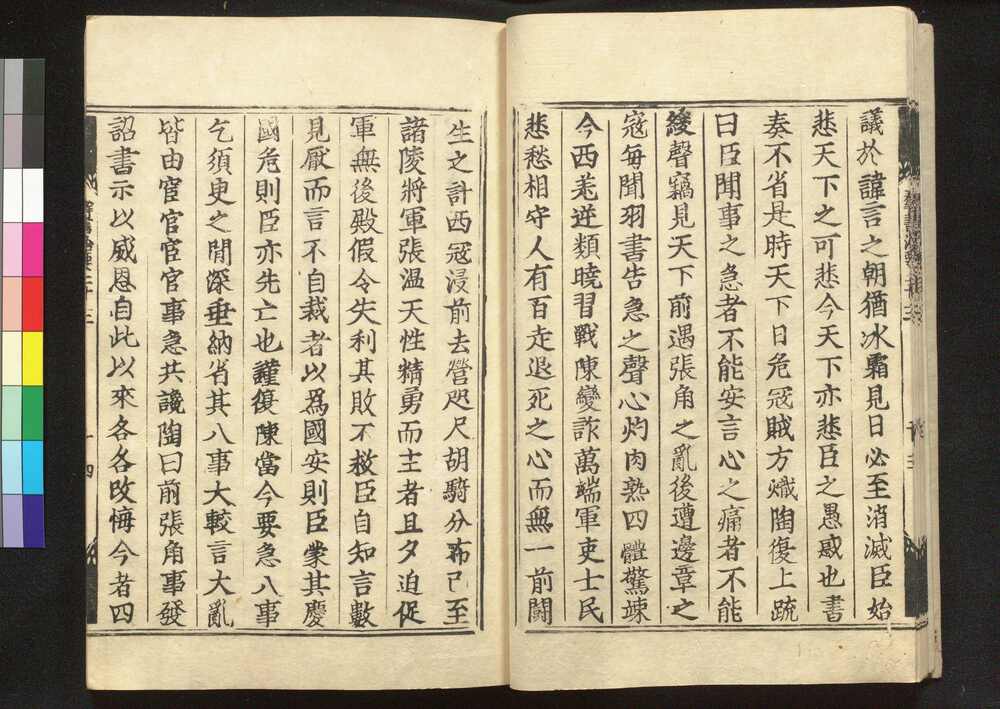 議於諱言之朝猶冰霜見日必至消滅臣始
悲天下之可悲今天下亦悲臣之愚惑也書
奏不省是時天下日危寇賊方熾陶復上疏
曰臣聞事之急者不能安言心之痛者不能
緩聲竊見天下前遇張角之亂後遭邊章之
寇每聞羽書告急之聲心灼內熟四體驚竦
今西羌逆類曉習戰陳變詐萬端軍吏士民
悲愁相守人有百走退死之心而無一前鬪
生之計西寇浸前去營咫尺胡騎分布已至
諸陵將軍張溫天性精勇而主者旦夕迫促
軍無後殿假令失利其敗不救臣自知言數
見厭而言不自裁者以爲國安則臣蒙其慶
國危則臣亦先亡也謹復陳當今要急八事
乞須臾之閒深垂納省其八事大較言大亂
皆由宦官宦官事急共讒陶曰前張角事發
詔書示以威恩自此以來各各改悔今者四